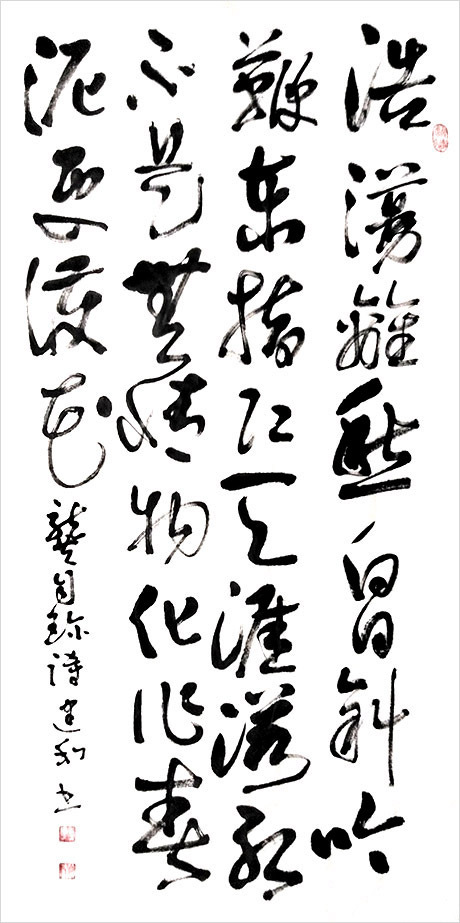 浩蕩離愁白日斜吟
鞭東指即天涯落紅
不是無情物化作春
泥更護花龔自珍詩建利書